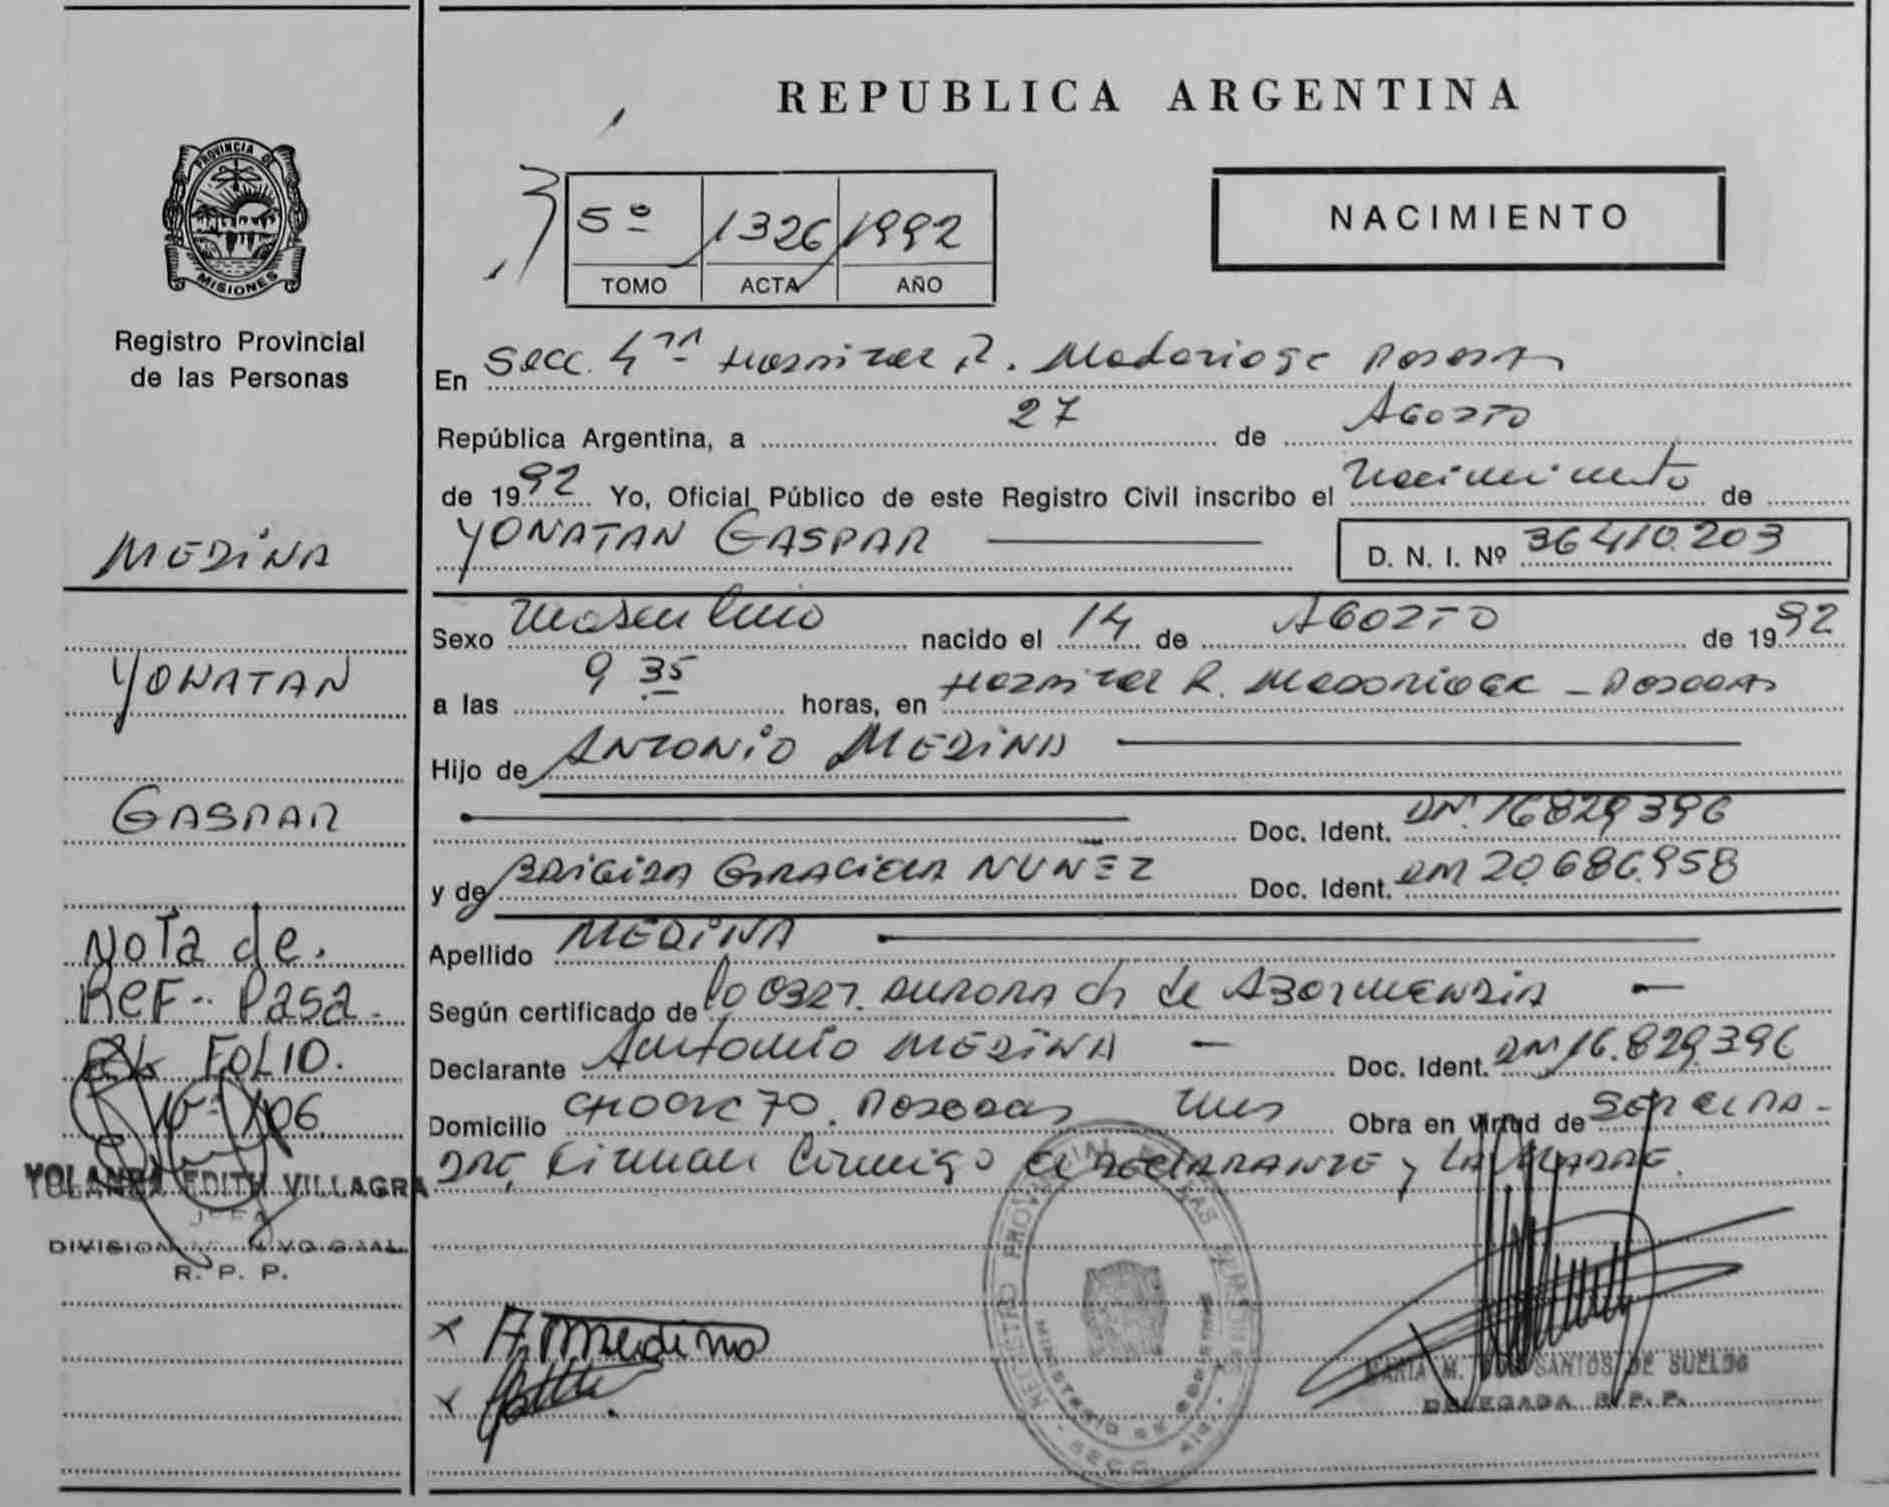 REPUBLICA ARGENTINA
PROVINCIA DE
MISIONES
Registro Provincial
de las Personas
5º 1326 1992
TOMO ACTA AÑO
NACIMIENTO
En Secc. 4ta Hospital R. Madariaga Posadas
República Argentina, a 27 de AGOSTO
de 1992 Yo, Oficial Público de este Registro Civil inscribo el Nacimiento de
YONATAN GASPAR
D. N. I. Nº 36.410.203
MEDINA
YONATAN
GASPAR
Sexo Masculino nacido el 14 de AGOSTO de 1992
a las 9 35 horas, en Hospital R. Madariaga - Posadas
Hijo de ANTONIO MEDINA
Doc. Ident. DNI 16829396
y de BRIGIDA GRACIELA NUÑEZ Doc. Ident. DNI 20.686.958
Apellido MEDINA
Según certificado de AURORA Ch de
Declarante Antonio MEDINA Doc. Ident. DNI 16.829.396
Domicilio 70. Posadas Mnes Obra en virtud de SER EL PA-
DRE, Firman Conmigo el DECLARANTE y LA MADRE.
Nota de.
REF-- Pasa
FOLIO.
106
YOLANDA EDITH VILLAGRA
JEFA
DIVISION
R. P. P.
A. Medina
REGISTRO PROVINCIAL DE LAS PERSONAS
MINISTERIO DE GOBIERNO
SECC.
MARIA M. DOS SANTOS DE SUELDO
DELEGADA R. P. P.